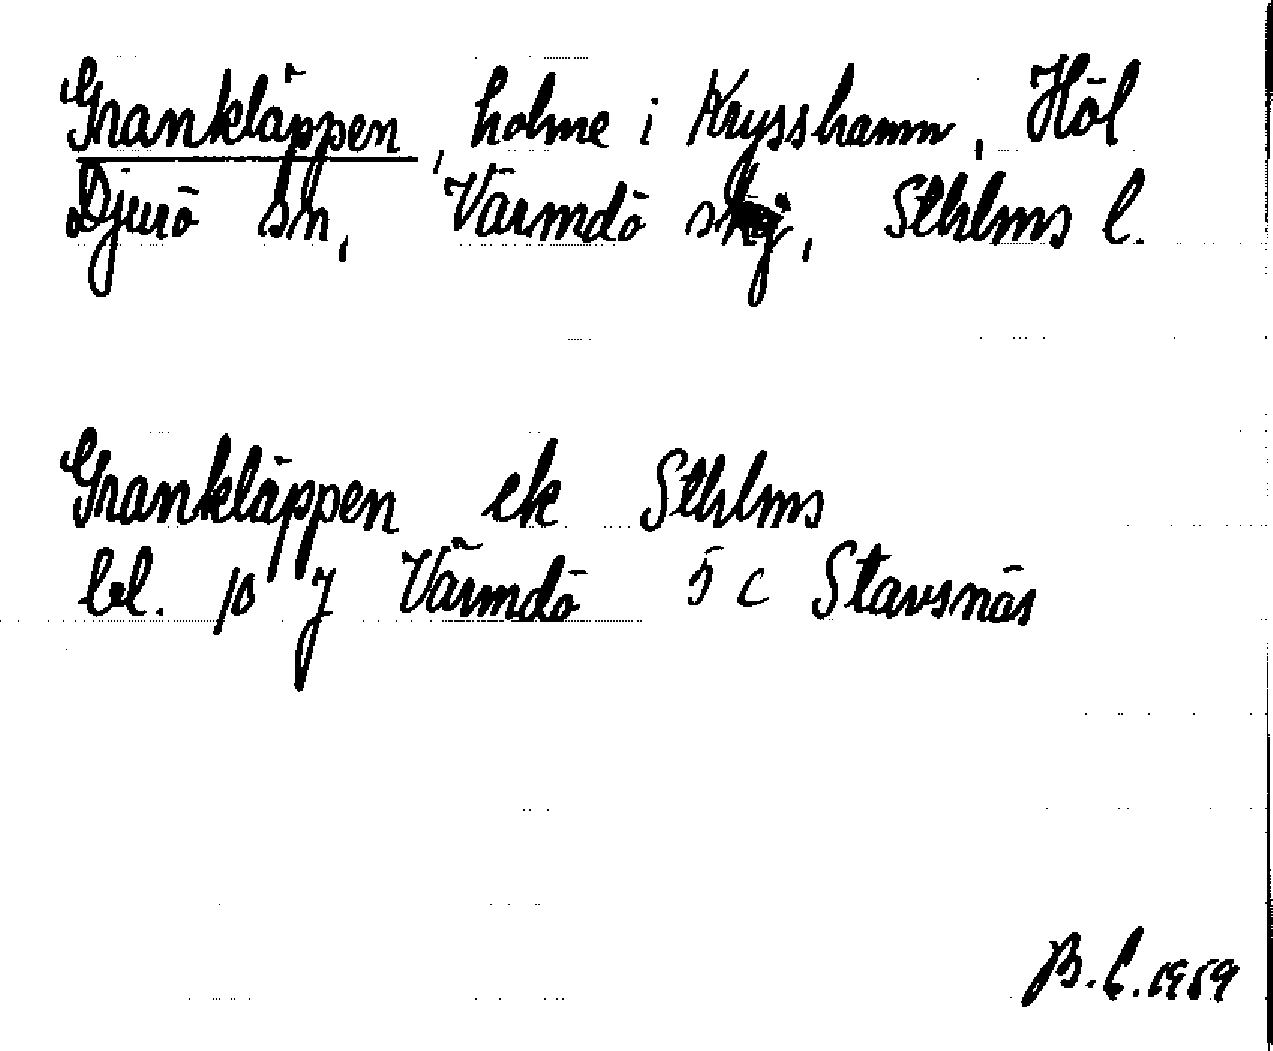 Grankläppen, holme i Krysshamn, Höl
Djurö sn, Värmdö skg, Sthlms l.
Grankläppen ek Sthlms
bl. 10 J Värmdö 5 c Stavsnäs
B.L. 1959